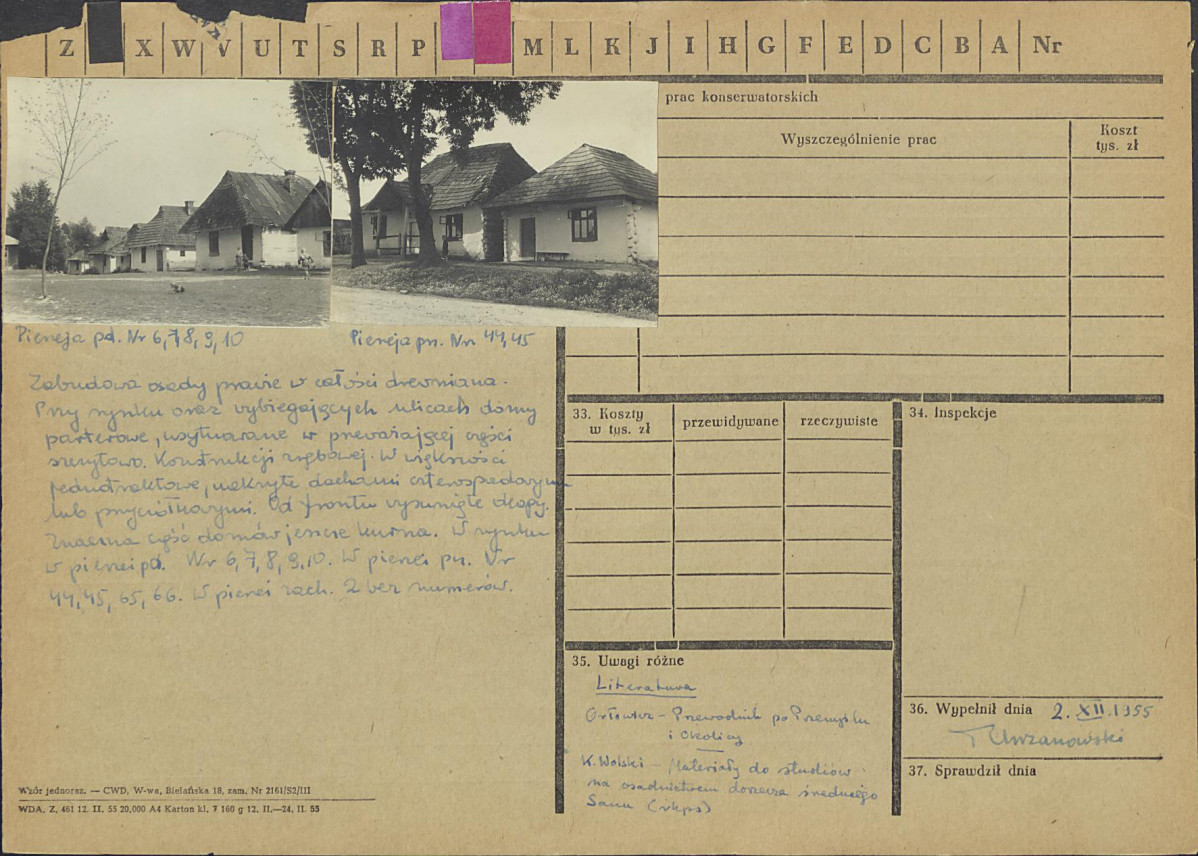 Z X W V U T S R P M L K J I H G F E D C B A Nr
prac konserwatorskich
Wyszczególnienie prac
Koszt
tys. zł
Pierzeja pd. Nr 6,7,8,9,10
Pierzeja pn. Nr 44,45
Zabudowa osady prawie w całości drewniana.
Przy rynku oraz wybiegających ulicach domy
parterowe, usytuowane w przeważającej części
szczytowo. Konstrukcji zrębowej. W większości
jednotraktowe, nakryte dachami czterospadowymi
lub przyciółkowymi. Od frontu wysunięte okapy.
Znaczna część domów jeszcze kurna. W rynku
w pierzei pd. Nr 6,7,8,9,10. W pierzei pn. Nr
44,45,65,66. W pierzei zach. 2 bez numerów.
33. Koszty
w tys. zł
przewidywane
rzeczywiste
34. Inspekcje
35. Uwagi różne
Literatura
Orłowicz - Przewodnik po Przemyślu
i Okolicy
K. Wolski - Materiały do studiów
na osadnictwem dorzecza średniego
Sanu (rkps)
36. Wypełnił dnia 2.XII.1955
T Chrzanowski
37. Sprawdził dnia
Wzór jednoraz. — CWD, W-wa, Bielańska 18, zam. Nr 2161/S2/III
WDA. Z. 461 12. II. 55 20.000 A4 Karton kl. 7 160 g 12. II.—24. II. 55